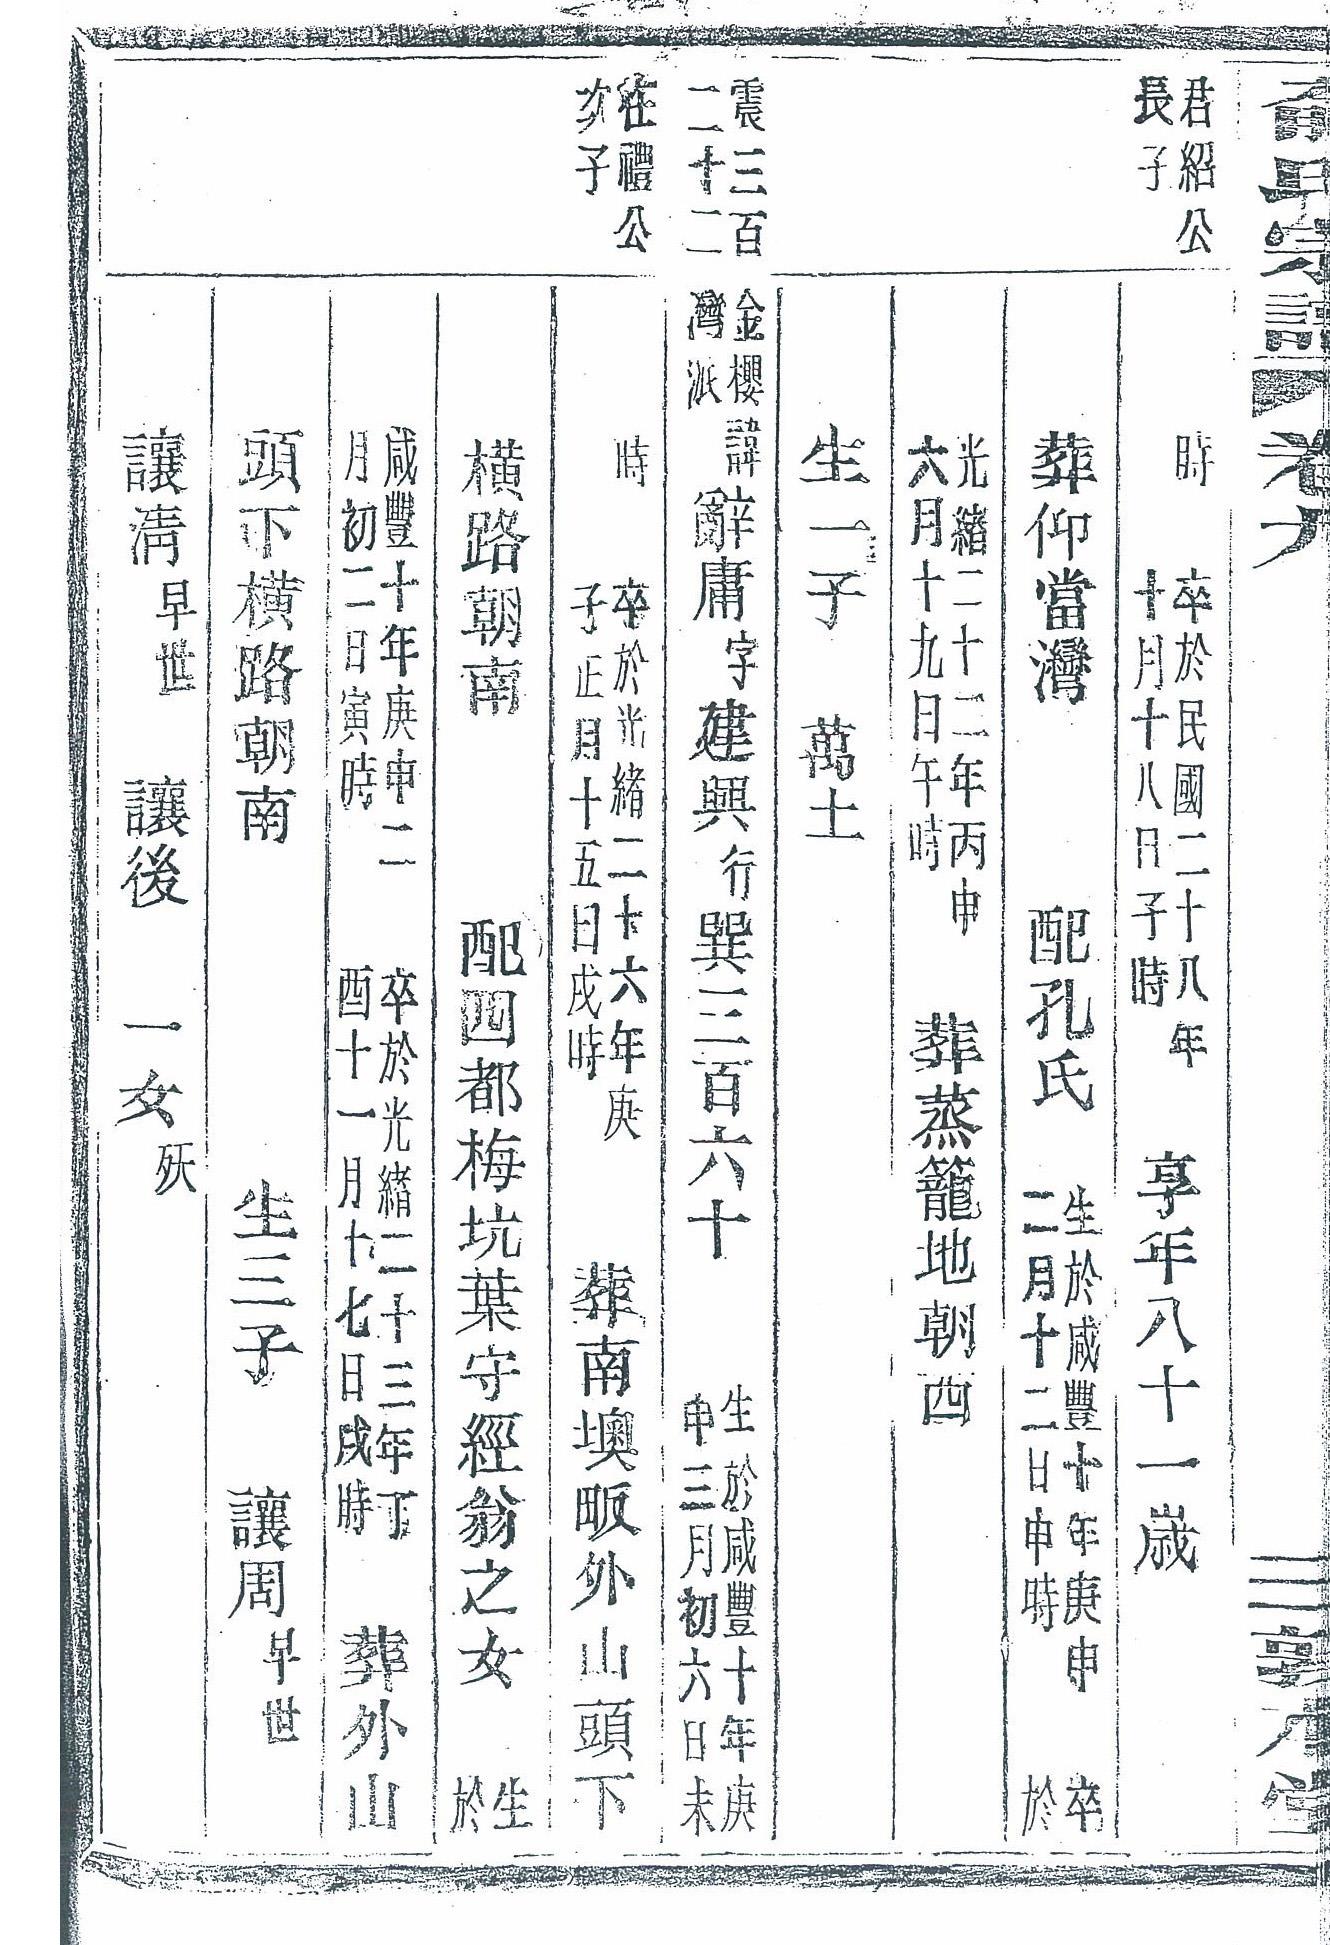 宗譜 卷六 三 敦本堂
君紹公長子 時 卒於民國二十八年十月十八日子時 享年八十一歲
葬仰當灣 配孔氏 生於咸豐十年庚申二月十二日申時 卒於
光緒二十二年丙申六月十九日午時 葬蒸籠地朝西
生一子 萬土
震三百二十二 金櫻灣派 諱辭庸字建興行巽三百六十 生於咸豐十年庚申三月初六日未
在禮公次子 時 卒於光緒二十六年庚子正月十五日戌時 葬南墺畈外山頭下
橫路朝南 配四都梅坑葉守經翁之女 生於
咸豐十年庚申二月初二日寅時 卒於光緒二十三年丁酉十一月十七日戌時 葬外山
頭下橫路朝南 生三子 讓周早世
讓清早世 讓後 一女殀